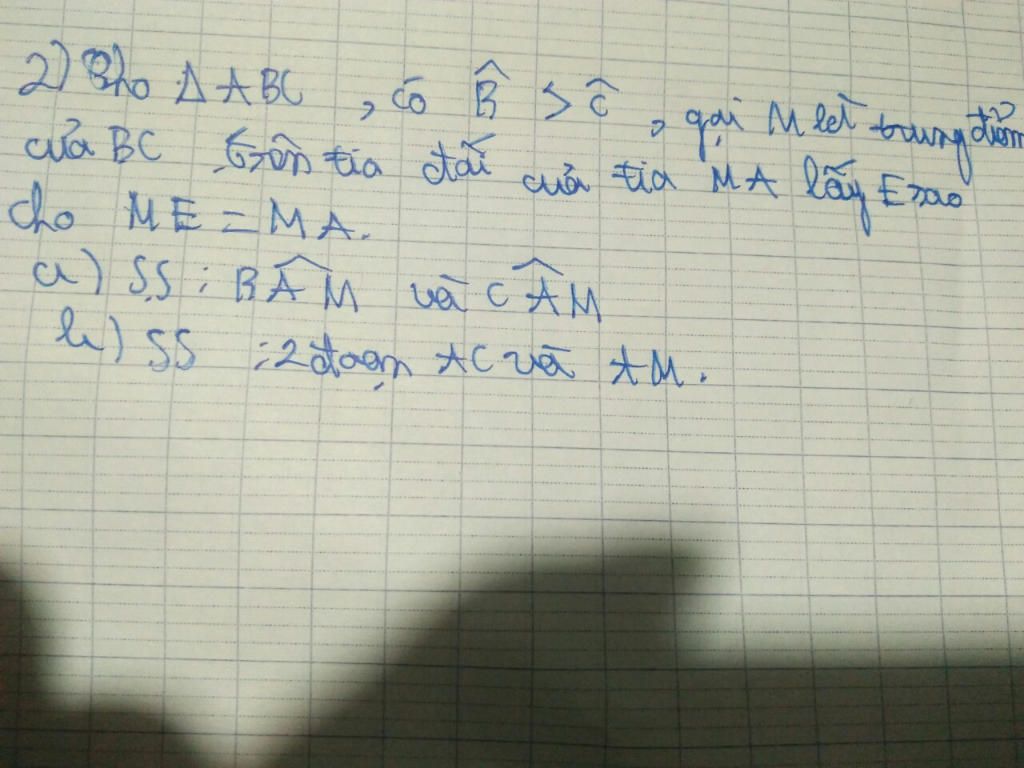 2) Cho Δ ABC , có B̂ > Ĉ , gọi M là trung điểm
của BC Trên tia đối của tia MA lấy E sao
cho ME = MA.
a) SS : BÂM và CÂM
b) SS : 2 đoạn AC và AM.